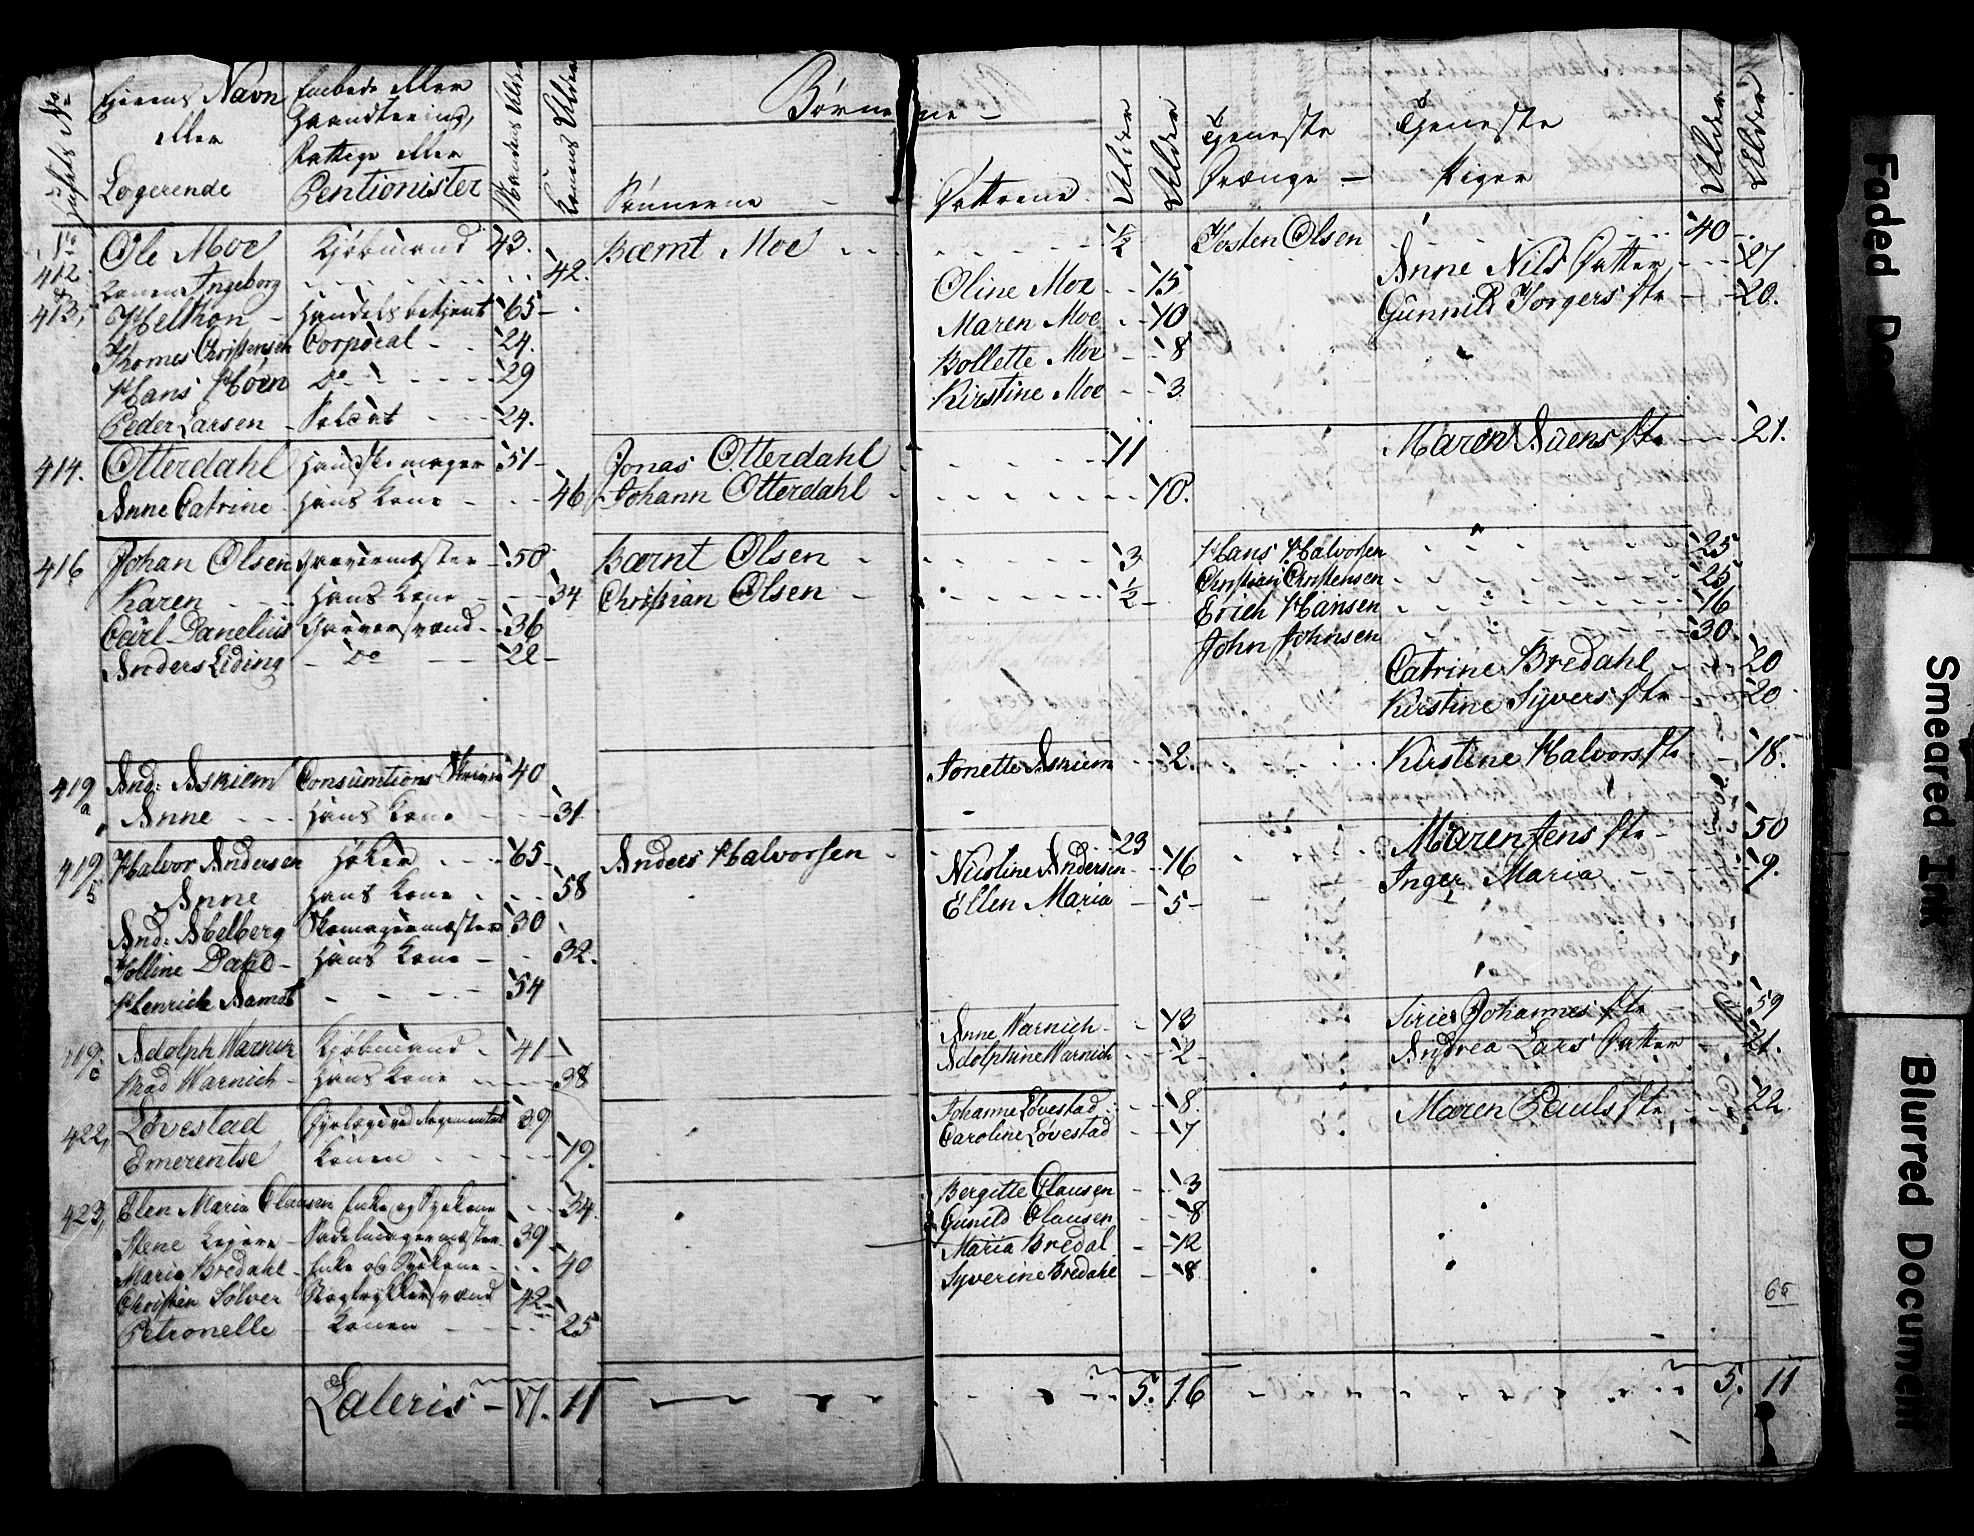 Husets No
Eierens Navn eller Logerende
Embede eller Haandtering, Rettige eller Pentionister
Mandens Alder
Konens Alder
Børnene
Sønnerne
Døttrene
Alder
Alder
Tjeneste Drænge
Tjeneste Piger
Alder
Alder
No 412 & 413,
Ole Moe Kjøbmand 43. Bærnt Moe ½ Josten Olsen 40
Konen Ingeborg 42. Anne Nils Datter 27
Oline Moe 15 Gunnild Jorgers Dtr 20.
Helthon Handelsbetjent 65 Maren Moe 10
Thomes Christensen Corporal 24. Bollette Moe 8
Hans Hoen Do 29 Kirstine Moe 3
Peder Larsen Soldat 24.
Maren Sørens Dtr 21.
414. Otterdahl Handskemager 51 Jonas Otterdahl 11
Anne Catrine Hans Kone 46 Johann Otterdahl 10.
416 Johan Olsen Garvermæster 50 Bærnt Olsen 3 Hans Halvorsen 25
Karen Hans Kone 34 Christian Olsen ½ Christian Christensen 25
Carl Danelius Garversvend 36 Erich Hansen 16
Anders Liding Do 22 John Johnsen 30.
Catrine Bredahl 20
Kirstine Syvers Dtr 20
419 a And: Askiem Consumtions Skriver 40 Jonette Askiem 2. Kirstine Halvors Dtr 18.
Anne Hans Kone 31
419 b Halvor Andersen Høker 65 Anders Halvorsen 23 Maren Jens Dtr 50
Anne Hans Kone 58 Nicoline Andersen 16 Inger Maria 9.
Ellen Maria 5
And: Abelberg Skomagermæster 30
Jolline Dahl Hans Kone 32.
Henrich 54
419 c Adolph Warnich Kjøbmand 41 Anne Warnich 13 Sirie Johannes Dtr 59
Mad Warnich Hans Kone 38 Adolphine Warnich 2 Andrea Lars Datter 21.
422, Løvestad 39 Johanne Løvestad 8. Maren Pauls Dtr 22
Emerentse Konen 19. Caroline Løvestad 7
423, Elen Maria Clausen Enke og Syekone 34 Bergitte Clausen 3
Stene Sadelmagermæster 39 Gunild Clausen 8
Maria Bredahl Enke og Syekone 40 Maria Bredal 12
Christen Sølver 42 Syverine Bredahl 8
Petronelle Konen 25
65
Lateris 17. 11 5. 16 5. 11
Faded Doc
Smeared Ink
Blurred Document